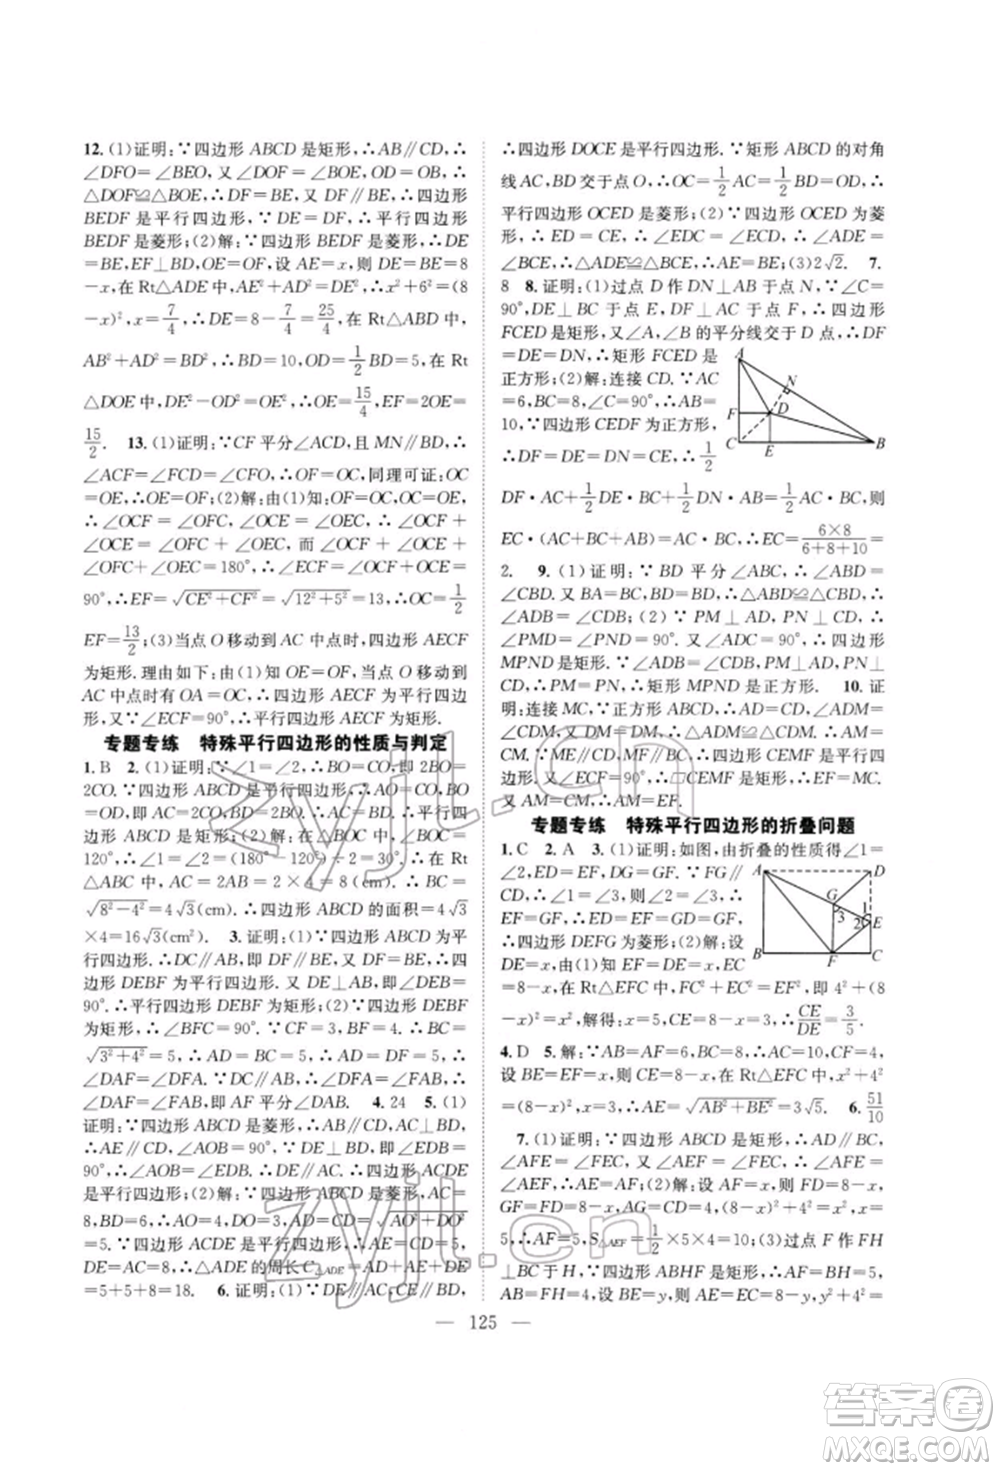 12. (1)证明:∵四边形 ABCD 是矩形,∴AB∥CD,∴
∠DFO=∠BEO,又∠DOF=∠BOE,OD=OB,∴
△DOF≌△BOE,∴DF=BE,又 DF∥BE,∴四边形
BEDF 是平行四边形,∵DE=DF,∴平行四边形
BEDF 是菱形;(2)解:∵四边形 BEDF 是菱形,∴DE=
BE,EF⊥BD,OE=OF,设 AE=x,则 DE=BE=8
-x,在 Rt△ADE 中,AE²+AD²=DE²,∴x²+6²=(8
-x)²,x=7/4,∴DE=8-7/4=25/4,在 Rt△ABD 中,
AB²+AD²=BD²,∴BD=10,∴OD=1/2BD=5,在 Rt
△DOE 中,DE²-OD²=OE²,∴OE=15/4,EF=2OE=
15/2. 13. (1)证明:∵CF 平分∠ACD,且 MN∥BD,∴
∠ACF=∠FCD=∠CFO,∴OF=OC,同理可证:OC
=OE,∴OE=OF;(2)解:由(1)知:OF=OC=OE,
∴∠OCF=∠OFC,∠OCE=∠OEC,∴∠OCF+
∠OCE=∠OFC+∠OEC,而∠OCF+∠OCE+
∠OFC+∠OEC=180°,∴∠ECF=∠OCF+∠OCE=
90°,∴EF=√(CE²+CF²)=√(12²+5²)=13,∴OC=1/2
EF=13/2;(3)当点 O 移动到 AC 中点时,四边形 AECF
为矩形.理由如下:由(1)知 OE=OF,当点 O 移动到
AC 中点时有 OA=OC,∴四边形 AECF 为平行四边
形,又∵∠ECF=90°,∴平行四边形 AECF 为矩形.
专题专练 特殊平行四边形的性质与判定
1. B 2. (1)证明:∵∠1=∠2,∴BO=CO,即 2BO=
2CO.∵四边形 ABCD 是平行四边形,∴AO=CO,BO
=OD,∴AC=2CO,BD=2BO.∴AC=BD,∴四边形
ABCD 是矩形;(2)解:在△BOC 中,∵∠BOC=
120°,∴∠1=∠2=(180°-120°)÷2=30°,∴在 Rt
△ABC 中,AC=2AB=2×4=8(cm),∴BC=
√(8²-4²)=4√3(cm),∴四边形 ABCD 的面积=4√3
×4=16√3(cm²). 3. 证明:(1)∵四边形 ABCD 为平行
四边形,∴DC∥AB,即 DF∥BE,又∵DF=BE,∴四
边形 DEBF 为平行四边形.又 DE⊥AB,即∠DEB=
90°,∴平行四边形 DEBF 为矩形;(2)∵四边形 DEBF
为矩形,∴∠BFC=90°.∵CF=3,BF=4.∴BC=
√(3²+4²)=5,∴AD=BC=5,∴AD=DF=5,∴
∠DAF=∠DFA.∵DC∥AB,∴∠DFA=∠FAB,∴
∠DAF=∠FAB,即 AF 平分∠DAB. 4. 24 5. (1)
证明:∵四边形 ABCD 是菱形,∴AB∥CD,AC⊥BD,
∴AE∥CD,∠AOB=90°.∵DE⊥BD,即∠EDB=
90°,∴∠AOB=∠EDB.∴DE∥AC,∴四边形 ACDE
是平行四边形;(2)解:∵四边形 ABCD 是菱形,AC=
8,BD=6,∴AO=4,DO=3,AD=CD=√(AO²+DO²)
=5.∵四边形 ACDE 是平行四边形,∴AE=CD=5,
DE=AC=8,∴△ADE 的周长C△ADE=AD+AE+DE
=5+5+8=18. 6. 证明:(1)∵DE∥AC,CE∥BD,
∴四边形 DOCE 是平行四边形.∵矩形 ABCD 的对角
线 AC,BD 交于点 O,∴OC=1/2AC=1/2BD=OD,∴
平行四边形 OCED 为菱形;(2)∵四边形 OCED 为菱
形,∴ED=EC,∠EDC=∠ECD,∴∠ADE=
∠BCE,∴△ADE≌△BCE,∴AE=BE;(3)2√2. 7.
8 8. 证明:(1)过点 D 作 DN⊥AB 于点 N,∵∠C=
90°,DE⊥BC 于点 E,DF⊥AC 于点 F,∴四边形
FCED 是矩形,又∠A,∠B 的平分线交于 D 点,∴DF
=DE=DN,∴矩形 FCED 是
正方形;(2)解:连接 CD.∵AC
=6,BC=8,∠C=90°,∴AB=
10,∵四边形 CEDF 为正方形,
∴DF=DE=DN,∴1/2
DF·AC+1/2DE·BC+1/2DN·AB=1/2AC·BC,则
EC·(AC+BC+AB)=AC·BC,∴EC=6×8/(6+8+10)=
2. 9. (1)证明:∵BD 平分∠ABC,∴∠ABD=
∠CBD.又 BA=BC,BD=BD,∴△ABD≌△CBD,∴
∠ADB=∠CDB;(2)∵PM⊥AD,PN⊥CD,∴
∠PMD=∠PND=90°.又∠ADC=90°,∴四边形
MPND 是矩形.∵∠ADB=∠CDB,PM⊥AD,PN
⊥CD,∴PM=PN,∴矩形 MPND 是正方形. 10. 证
明:(1)∵四边形 ABCD 是正方形,∴AD=CD,∠ADM=
∠CDM,又 DM=DM,∴△ADM≌△CDM,∴AM=
CM;(2)∵CM∥EF,CF∥BD,∴四边形 CEMF 是平行四
边形.∵∠BCF=90°,∴▱CEMF 是矩形,∴EF=MC.
又 AM=CM,∴AM=EF.
专题专练 特殊平行四边形的折叠问题
1. C 2. A 3. (1)证明:如图,由折叠的性质得∠1=
∠2,ED=EF,DG=GF.∵FG∥
CD,∴∠1=∠3,∴∠2=∠3,∴
EF=GF,∴EF=ED=DG=GF,
∴四边形 DEFG 为菱形;(2)解:设
DE=x,由(1)知 EF=DE=x,EC
=8-x,在 Rt△EFC 中,FC²+EC²=EF²,即 4²+(8
-x)²=x²,解得:x=5,CE=8-x=3,∴CE/DE=3/5.
4. D 5. 解:∵AB=AF=6,BC=AD=10,∴CF=4,
设 BE=EF=x,则 EC=8-x,在 Rt△EFC 中,x²+4²
=(8-x)²,∴x=3,∴AE=√(AB²+BE²)=3√5. 6. 51/10
7. (1)证明:∵四边形 ABCD 是矩形,∴AD∥BC,∴
∠AFE=∠FEC.∵∠AEF=∠FEC,∴∠AFE=
∠AEF,∴AE=AF;(2)∵四边形 ABCD 是矩形,∴∠D=
∠G=90°,FD=FG,CD=AG=4,设 AF=x,则 FD=FG=8
-x.在 Rt△AGF 中,FG²+AG²=AF²,(8-x)²+4²=x²,∴x=
5,∴AE=AF=5,∴S△AEF=1/2×5×4=10;(3)过点 F 作 FH⊥
BC 于 H,∵四边形 ABHF 是矩形,∴AF=BH=5,
AB=FH=4,设 BE=y,则 EH=5-y,y²+4²=
125
答案卷
MXQE.COM
zyjl.cn
zyjl.cn
A
N
F
D
C
E
B
A
D
G
1
3
2
E
B
F
C